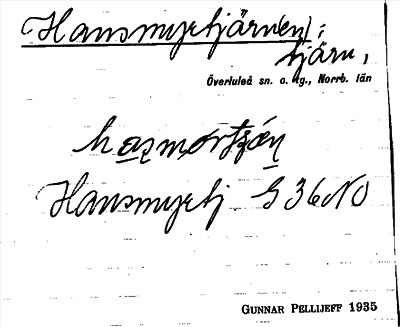 Hansmyrtjärnen;
tjärn,
Överluleå sn. o. tg., Norrb. län
Hansmyrtj G36NO
GUNNAR PELLIJEFF 1935